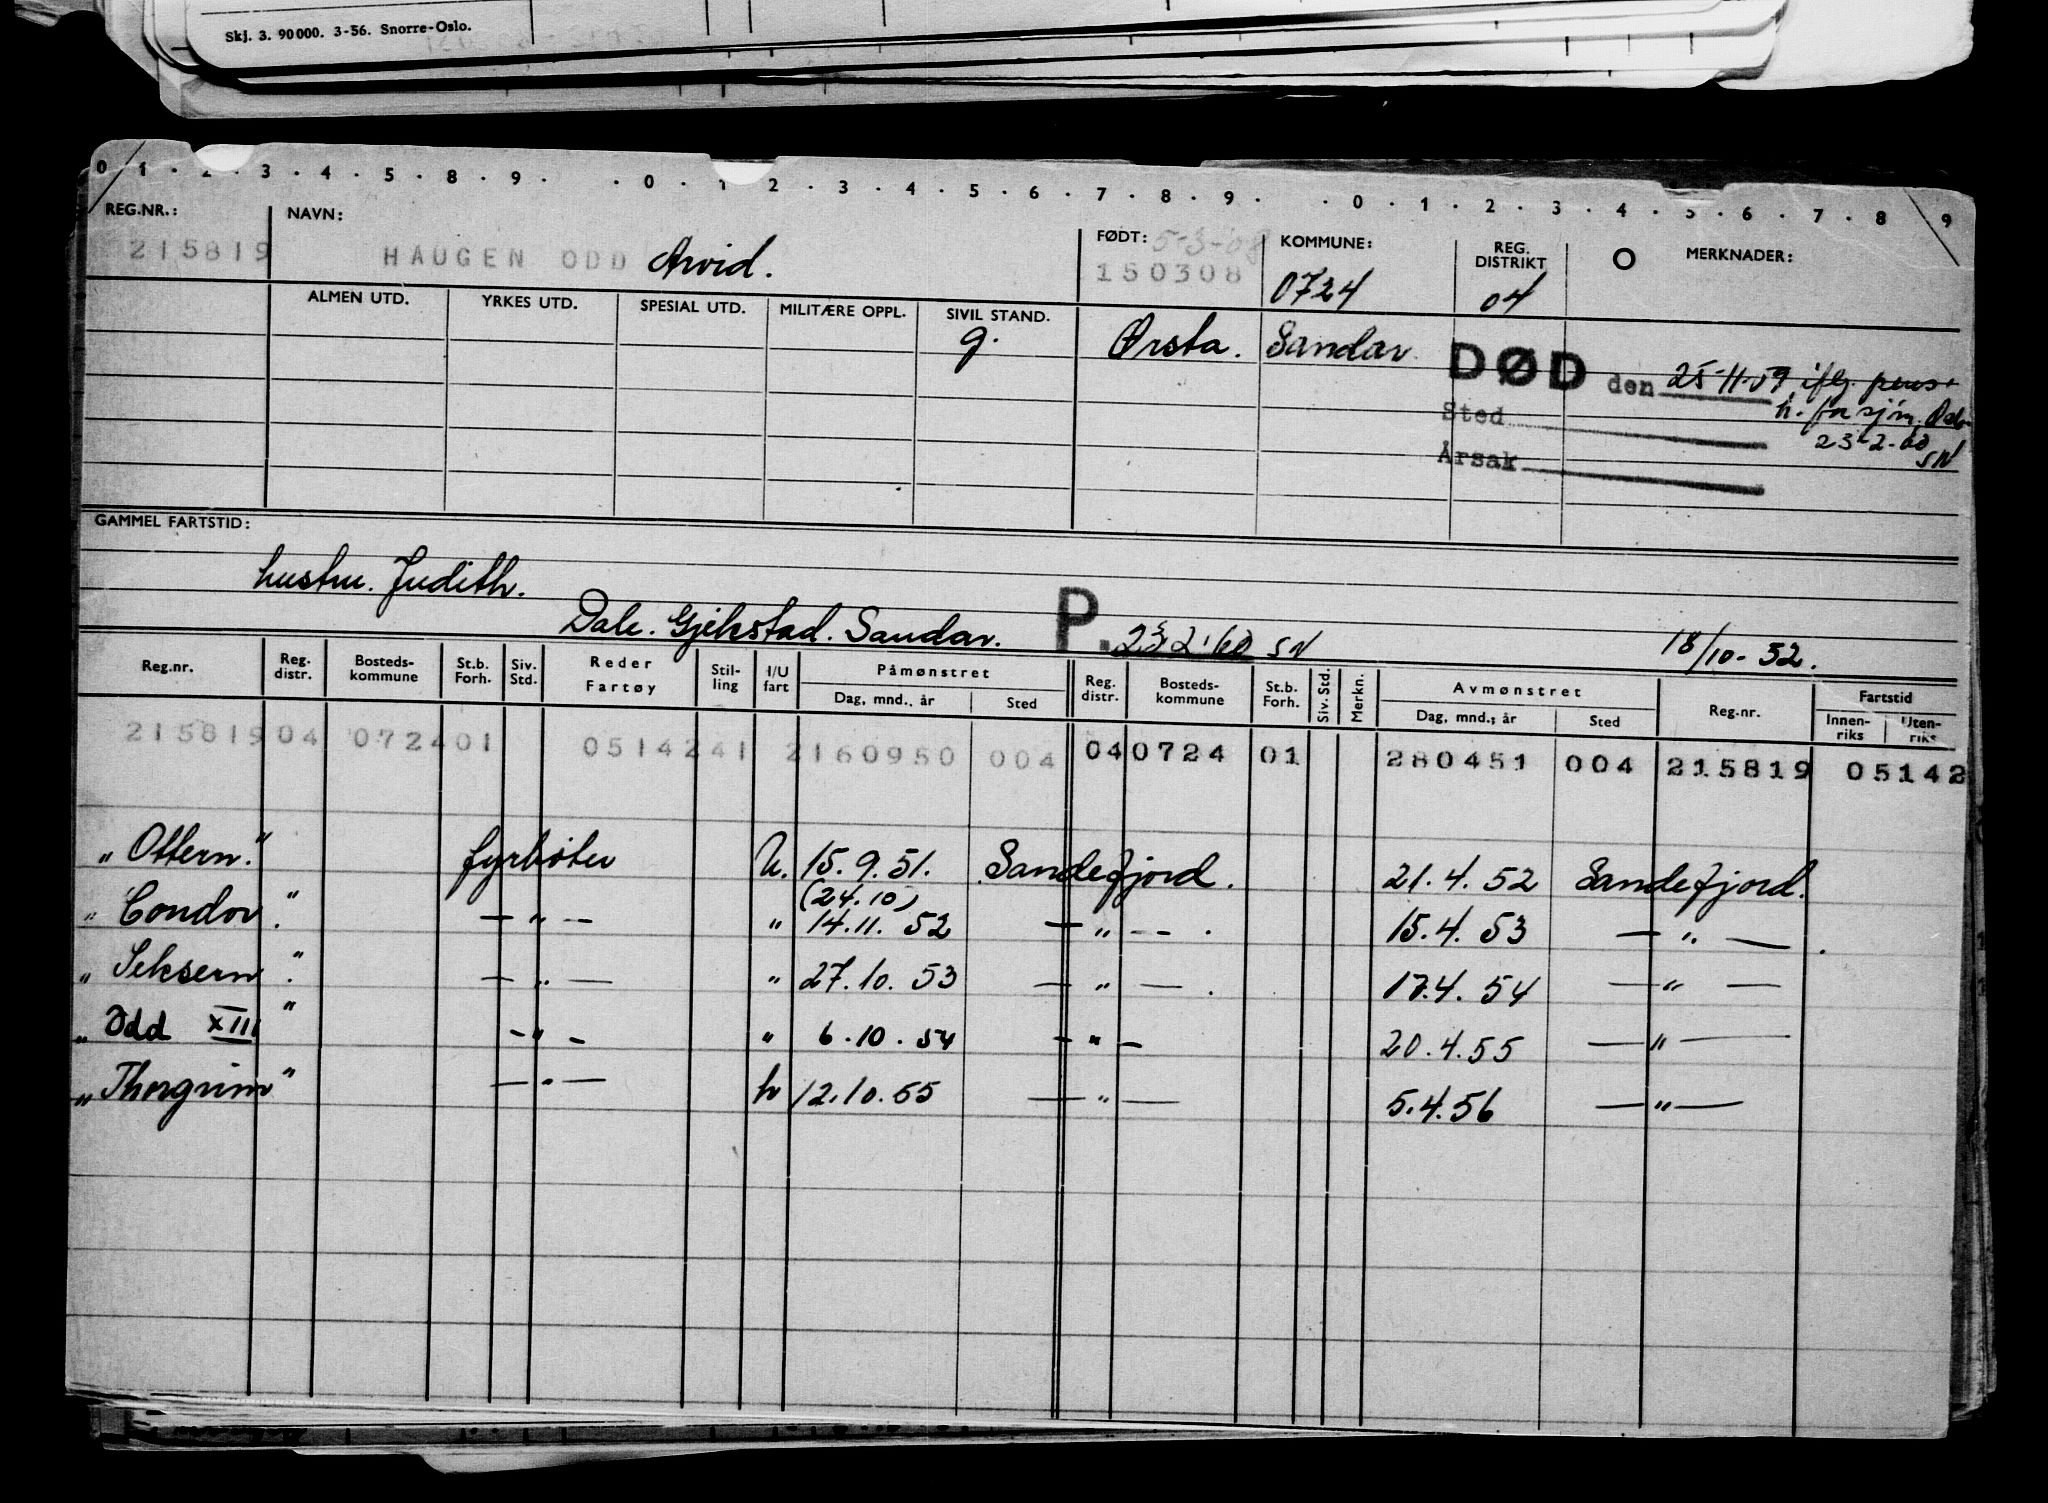 Skj. 3. 90 000. 3-56. Snorre-Oslo.
0 1 . 2 . 3 . 4 . 5 . 8 . 9 . . 0 . 1 2 . 3 . 4 . 5 . 6 . 7 . 8 . 9 . . 0 . 1 . 2 . 3 . 4 . 5 . 6 . 7 . 8 9
REG.NR.: NAVN: FØDT: 5-3-08 KOMMUNE: REG. DISTRIKT O MERKNADER:
215819 HAUGEN ODD Arvid. 150308 0724 04
ALMEN UTD. YRKES UTD. SPESIAL UTD. MILITÆRE OPPL. SIVIL STAND.
g. Ørsta. Sandar
DØD den 25-11-59 iflg. pens.
tr. for sjøm. Oslo
Sted 23-2-60
Årsak SN
GAMMEL FARTSTID:
hustru. Judith.
Dale. Gjekstad. Sandar. P. 23.2.60 SN 18/10-52.
Reg.nr. Reg. distr. Bosteds-kommune St.b. Forh. Siv. Std. Reder Fartøy Stil-ling I/U fart Påmønstret Dag, mnd., år Sted Reg. distr. Bosteds-kommune St.b. Forh. Siv. Std. Merkn. Avmønstret Dag, mnd., år Sted Reg.nr. Fartstid Innen-riks Uten-riks
215819 04 0724 01 0514241 2160950 004 04 0724 01 280451 004 215819 05142
"Ottern." fyrbøter U. 15.9.51. Sandefjord. 21.4.52 Sandefjord.
(24.10)
"Condor." — " — " 14.11.52 — " — — . 15.4.53 — " — .
"Seksern." — " — " 27.10.53 — " — . 17.4.54 — " —
"Odd XIII" — " — " 6.10.54 — " — 20.4.55 — " —
"Thorgrim" — " — h 12.10.55 — " — 5.4.56 — " —